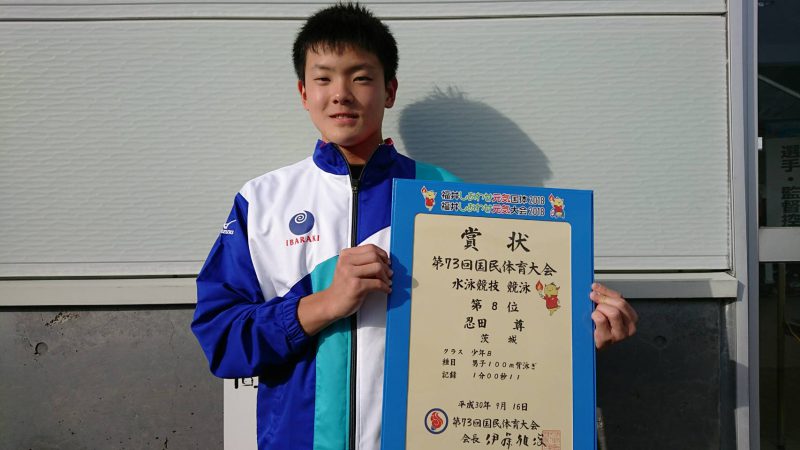 福井しあわせ元気国体2018
福井しあわせ元気大会2018
賞状
第73回国民体育大会
水泳競技 競泳
第8位
忍田 尊
茨城
クラス 少年B
種目 男子100m背泳ぎ
記録 1分00秒11
平成30年9月16日
第73回国民体育大会
会長
IBARAKI
選手・監督控